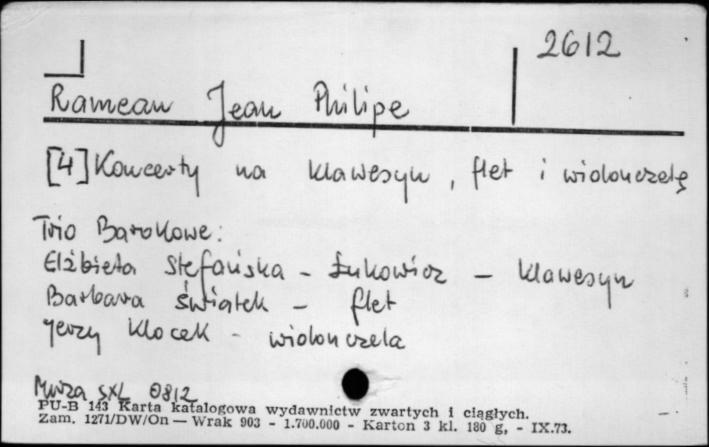 2612
Rameau Jean Philipe
[4] Koncerty na klawesyn, flet i wiolonczelę
Trio Barokowe:
Elżbieta Stefańska - Łukowicz - klawesyn
Barbara Świątek - flet
Jerzy Klocek - wiolonczela
Muza SXL 0812
PU-B 143 Karta katalogowa wydawnictw zwartych i ciągłych.
Zam. 1271/DW/On — Wrak 903 - 1.700.000 - Karton 3 kl. 180 g, - IX.73.